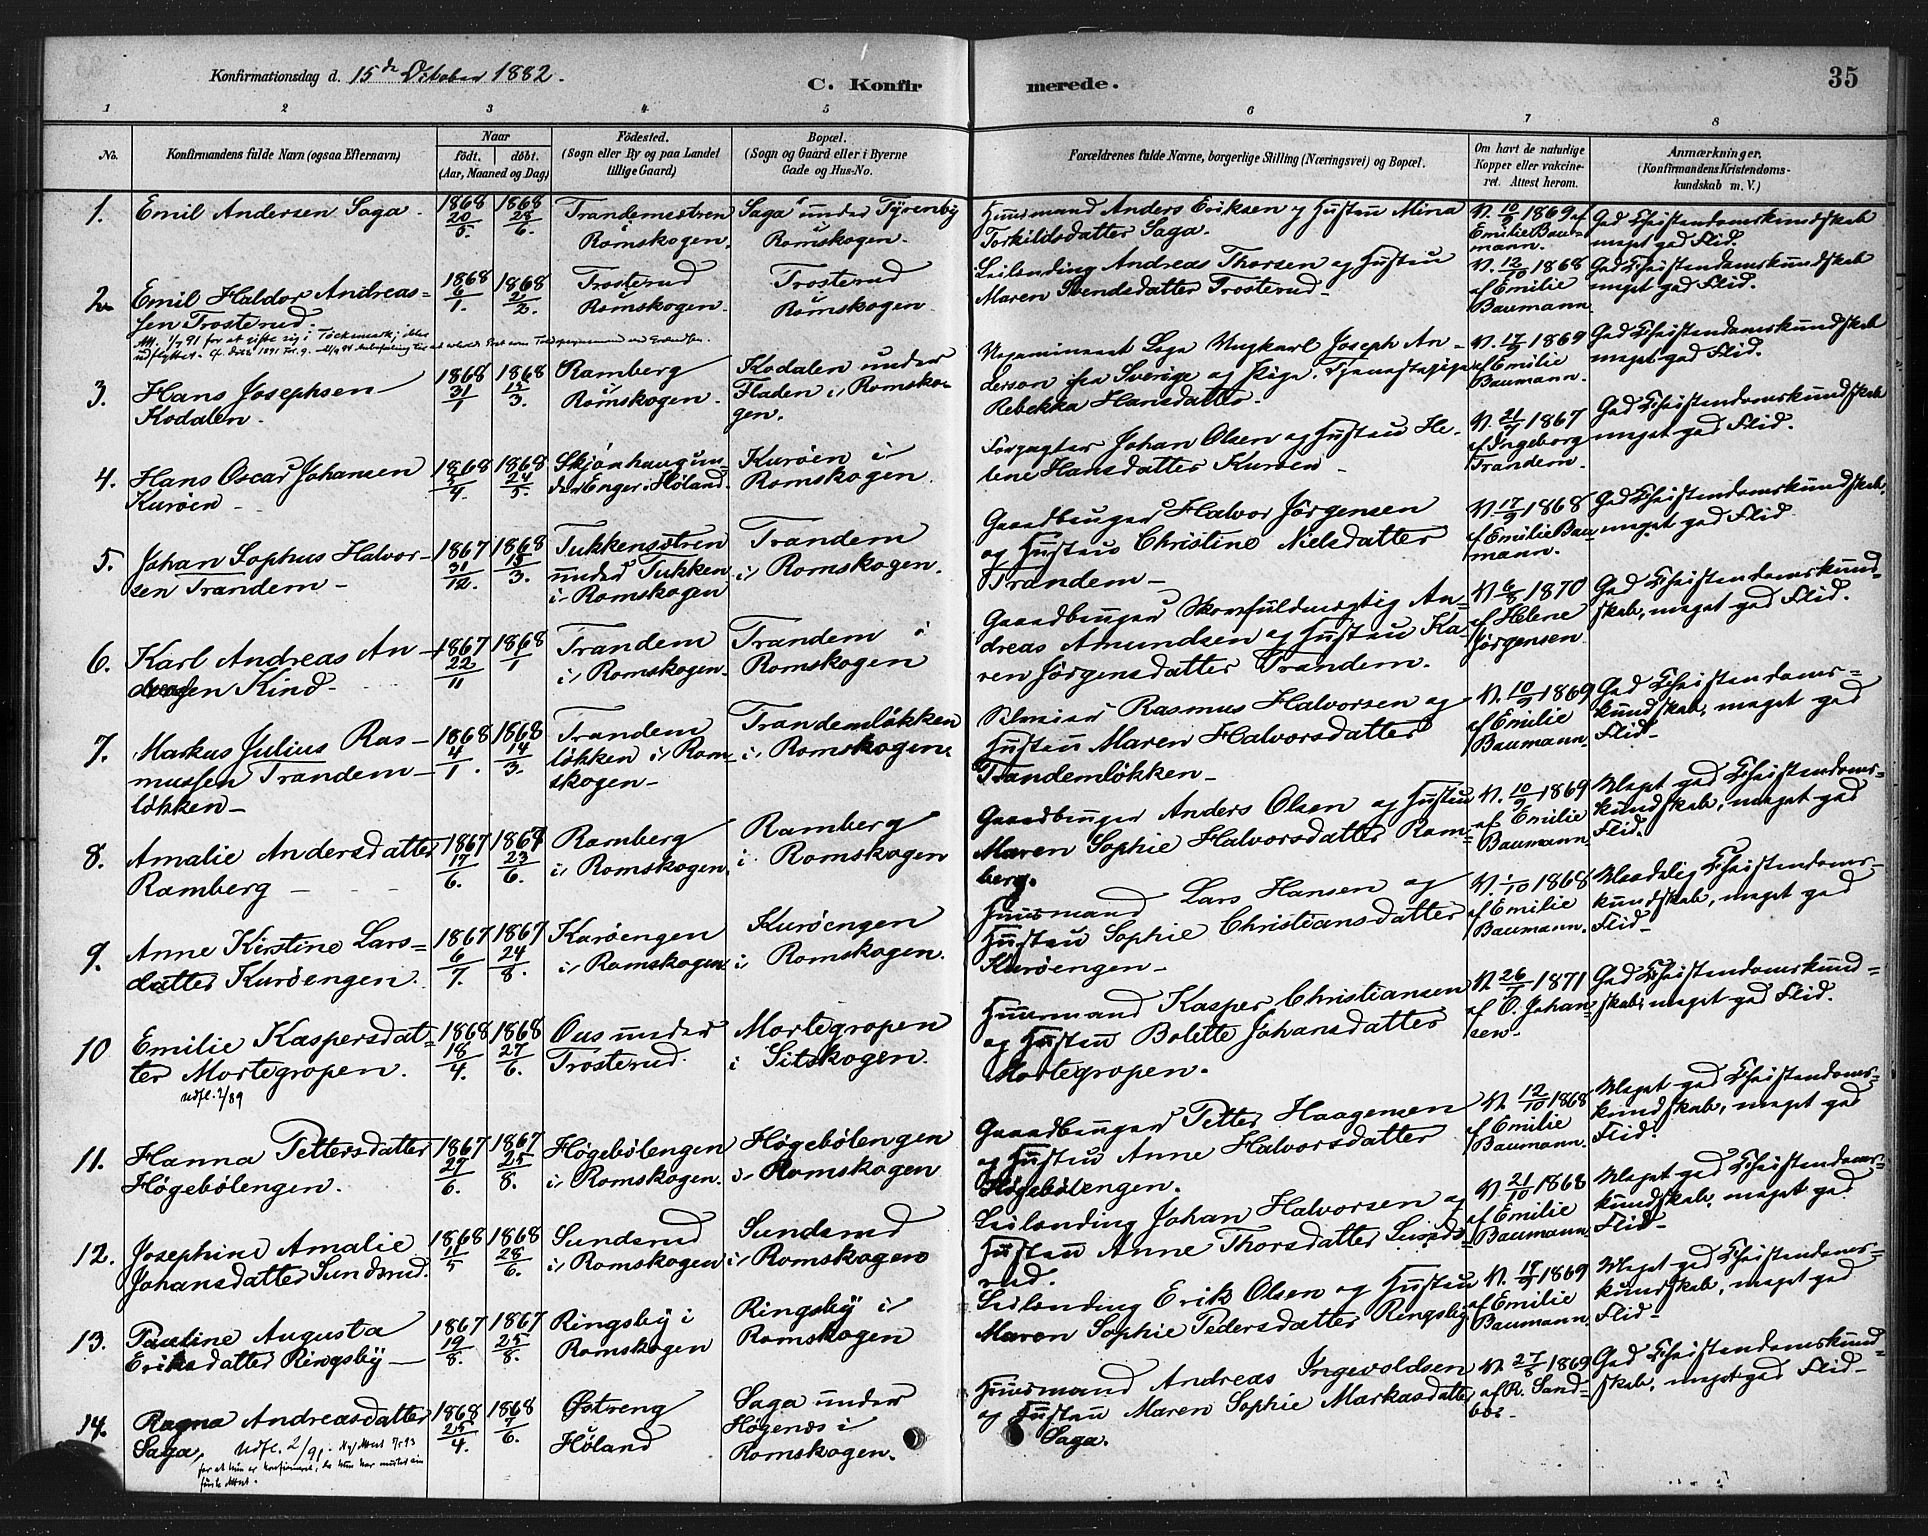 Konfirmationsdag d. 15de October 1882.
C. Konfirmerede.
35
1 2 3 4 5 6 7 8
No.
Konfirmandens fulde Navn (ogsaa Efternavn)
Naar
født. døbt.
(Aar, Maaned og Dag)
Fødested.
(Sogn eller By og paa Landet
tillige Gaard)
Bopæl.
(Sogn og Gaard eller i Byerne
Gade og Hus-No.
Forældrenes fulde Navne, borgerlige Stilling (Næringsvei) og Bopæl.
Om havt de naturlige
Kopper eller vakcine-
ret. Attest herom.
Anmærkninger.
(Konfirmandens Kristendoms-
kundskab m. V.)
1. Emil Andersen Saga. 1868 20/5. 1868 28/6. Trandemsøtren i Romskogen. Saga under Tyrenby i Romskogen. Huusmand Anders Eriksen og Hustru Mina
Torkildsdatter Saga. V. 10/9 1869 af Emilie Baumann. God Christendomskundskab
meget god Flid.
2. Emil Haldor Andreas=
sen Trosterud. 1868 6/1. 1868 2/2. Trosterud i Romskogen. Trosterud i Romskogen. Leilænding Andreas Thorsen og Hustru
Maren Svendsdatter Trosterud. V. 12/10 1868 af Emilie Baumann God Christendomskundskab
meget god Flid.
3. Hans Josephsen
Kodalen. 1868 31/1 1868 15/3. Ramberg i Romskogen. Kodalen under Fladen i Romskogen. Ungkarl Joseph An-
derson fra Sverige og Pige, Tjenestepige
Rebekka Hansdatter. V. 17/9 1869 af Emilie Baumann. God Christendomskundskab
meget god Flid.
4. Hans Oscar Johansen
Kurøen 1868 5/4. 1868 24/5. Skjønhaug under Enger i Høland. Kurøen i Romskogen. Forpagter Johan Olsen og Hustru He-
lene Hansdatter Kurøen V. 21/9 1867 af Ingeborg Trandem. God Christendomskundskab
meget god Flid.
5. Johan Sophus Halvor-
sen Trandem 1867 31/12. 1868 15/3. Tukkensøtren under Tukken i Romskogen Trandem i Romskogen. Gaardbruger Halvor Jørgensen
og Hustru Christine Nielsdatter
Trandem V. 17/9 1868 af Emilie Baumann. God Christendomskundskab,
meget god Flid
6. Karl Andreas An-
dreasen Kind. 1867 22/11 1868 1/1 Trandem i Romskogen. Trandem i Romskogen Gaardbruger An-
dreas Amundsen og Hustru Ka-
ren Jørgensdatter Trandem. V. 6/8 1870 af Helene Jørgensen God Christendomskund-
skab, meget god Flid.
7. Markus Julius Ras-
mussen Trandem-
løkken 1868 4/1. 1868 14/3. Trandem løkken i Romskogen Trandemløkken i Romskogen. Rasmus Halvorsen og
Hustru Maren Halvorsdatter
Trandemløkken V. 10/9 1869 af Emilie Baumann. God Christendoms-
kundskab, meget god
Flid
8. Amalie Andersdatter
Ramberg 1867 17/6. 1867 23/6. Ramberg i Romskogen. Ramberg i Romskogen Gaardbruger Anders Olsen og Hustru
Maren Sophie Halvorsdatter Ram-
berg. V. 10/9 1869 af Emilie Baumann. Meget god Christendoms-
kundskab, meget god
Flid.
9. Anne Kirstine Lars=
datter Kurøengen. 1867 6/7. 1867 24/8. Kurøengen i Romskogen. Kurøengen i Romskogen. Huusmand Lars Hansen og
Hustru Sophie Christiansdatter
Kurøengen V. 1/10 1868 af Emilie Baumann. Maadelig Christendoms-
kundskab, meget god
Flid
10 Emilie Kaspersdat=
ter Mortegropen.
Udfl. 2/89 1868 18/4. 1868 27/6. Ous under Trosterud. Mortegropen i Sitskogen. Huusmand Kasper Christiansen
og Hustru Bolette Johansdatter
Mortegropen. V. 26/7 1871 af O. Johansen God Christendomskund=
skab, meget god Flid.
11. Hanna Pettersdatter
Høgebølengen. 1867 27/6. 1867 25/8. Høgebølengen i Romskogen. Høgebølengen i Romskogen Gaardbruger Petter Haagensen
og Hustru Anne Halvorsdatter
Høgebølengen. V. 12/10 1868 af Emilie Baumann. Meget god Christendoms-
kundskab, meget god
Flid.
12. Josephine Amalie
Johansdatter Sundsrud. 1868 11/5 1868 28/6. Sundsrud i Romskogen Sundsrud i Romskogen Leilænding Johan Halvorsen og
Hustru Anne Thorsdatter Sunds-
rud. V. 21/10 1868 af Emilie Baumann. Meget god Christendoms-
kundskab, meget god
Flid
13. Pauline Augusta
Eriksdatter Ringsby 1867 19/8. 1867 25/8. Ringsby i Romskogen Ringsby i Romskogen Leilænding Erik Olsen og Hustru
Maren Sophie Pedersdatter Ringsby V. 17/9 1869 af Emilie Baumann. Meget god Christendoms-
kundskab, meget god
Flid
14. Ragna Andreasdatter
Saga, Udfl. 2/91. 1868 25/4. 1868 7/6. Østreng Høland Saga under Høgenæs i Romskogen. Huusmand Andreas Ingevoldsen
og Hustru Maren Sophie Markasdatter
Saga. V. 27/8 1869 af R. Sandboe God Christendomskund-
skab, meget god Flid